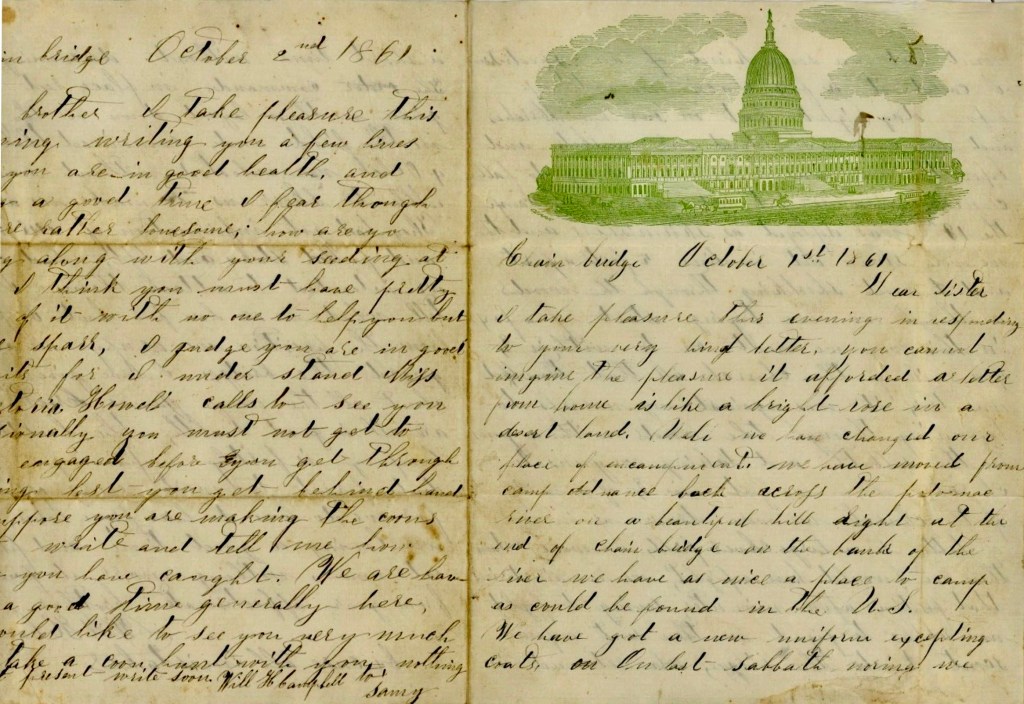 in bridge October 2nd 1861
brother I take pleasure this
ing writing you a few lines
you are in good health, and
a good time I fear though
re rather lonesome; how are yo
along with your seeding at
I think you must have pretty
of it with no one to help you but
spark, I judge you are in good
its for I under stand Miss
toria Howell calls to see you
sionally you must not get to
engaged before you get through
ing lest you get behind hand
uppose you are making the coons
write and tell me how
you have caught. We are hav
a good time generally here,
ould like to see you very much
take a coon hunt with you nothing
present write soon Will H Campbell to
Samy
Chain bridge October 1st 1861
Dear Sister
I take pleasure this evening in responding
to your very kind letter, you cannot
imagine the pleasure it afforded a letter
from home is like a bright rose in a
desert land. Well we have changed our
place of encampment. we have moved from
camp ordnance back across the potomac
river on a beautiful hill right at the
end of chain bridge on the bank of the
river we have as nice a place to camp
as could be found in the U.S.
We have got a new uniform excepting
coats, on On last Sabbath moring we